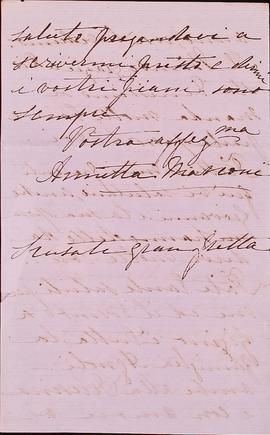 salute pregandovi a
scrivermi presto e dirmi
i vostri piani sono
sempre
Vostra affez ma
Annetta Marconi
Scusate gran fretta